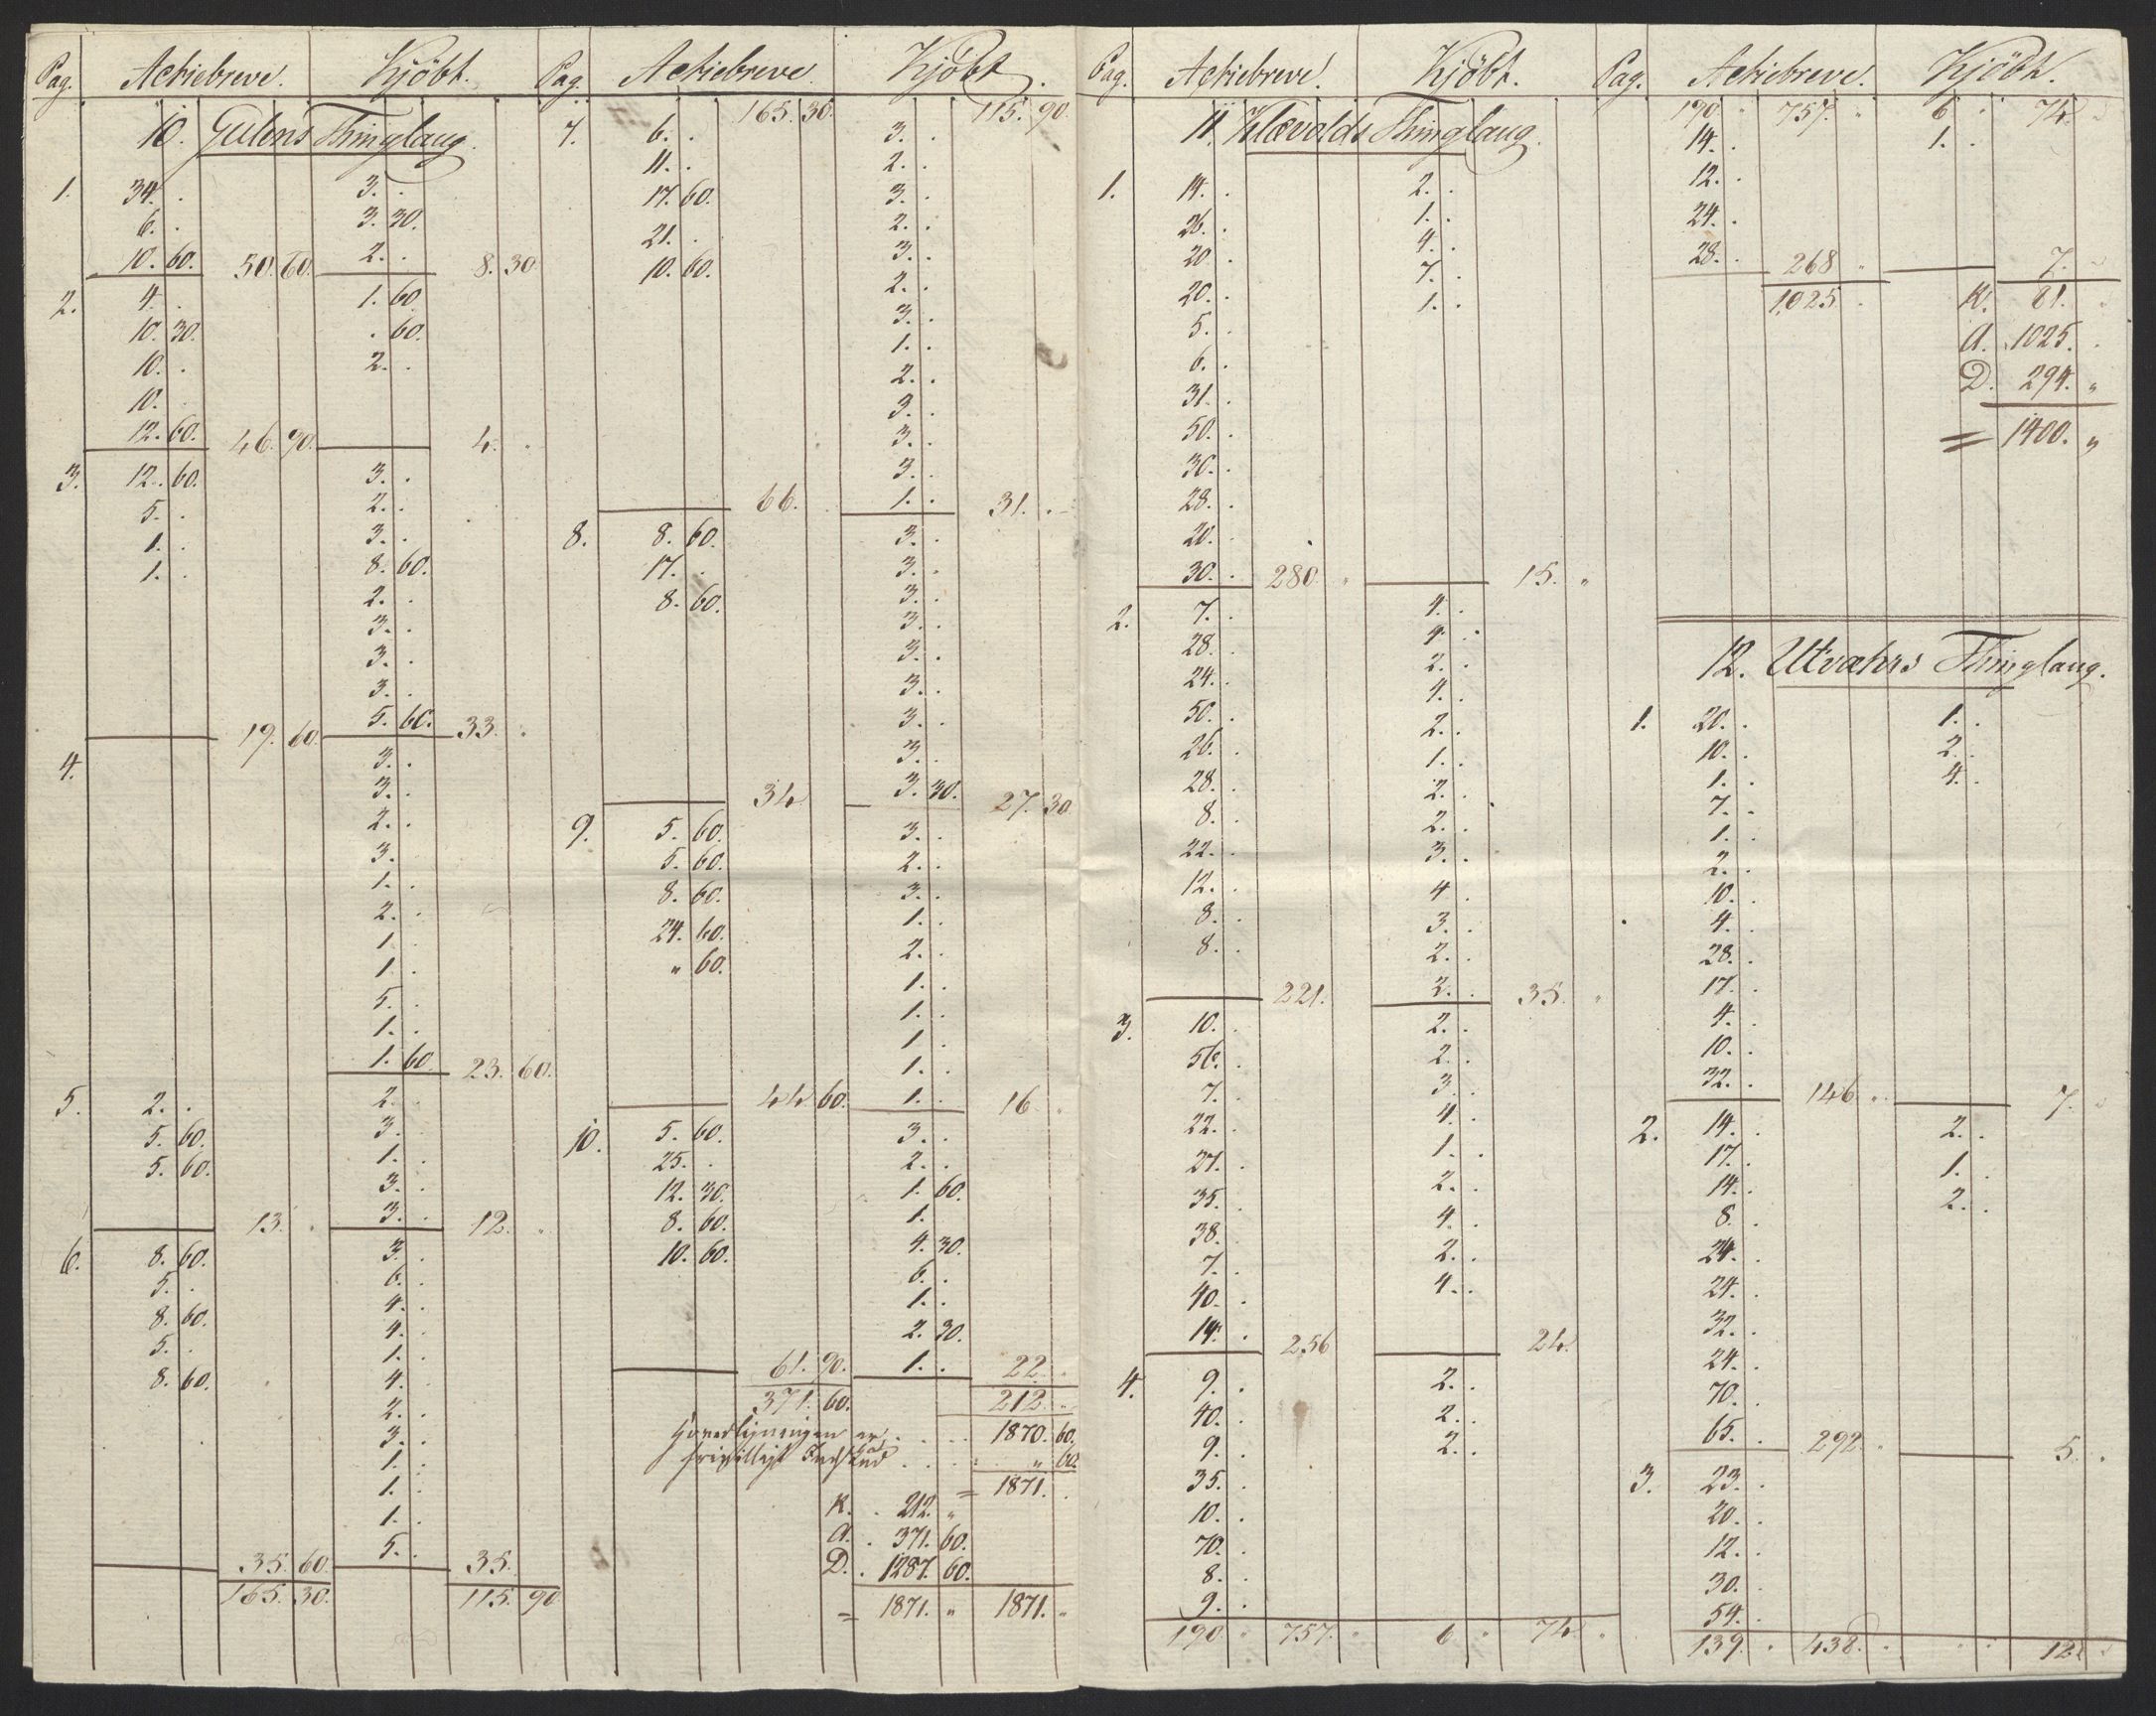 Pag. Actiebreve. Kjöbt.
10. Gulens Thinglaug.
1. 34. . 3. .
6. . 3. 30.
10. 60. 50. 60. 2. . 8. 30
2. 4. . 1. 60
10. 30. . 60.
10. . 2. .
10. .
12. 60. 46. 90. 4. .
3. 12. 60. 3. .
5. . 2. .
1. . 3. .
1. . 8. 60.
2. .
3. .
3. .
3. .
19. 60. 5. 60. 33. .
4. 3. .
3. .
2. .
3. .
1. .
2. .
1. .
1. .
5. .
1. .
1. 60 23. 60.
5. 2. . 2. .
5. 60. 3. .
5. 60. 1. .
3. .
13. . 3. . 12. .
6. 8. 60. 3. .
5. . 6. .
8. 60. 4. .
5. . 4. .
1. .
8. 60. 4. .
2. .
3. .
1. .
1. .
1. .
5. .
35. 60. 35.
165. 30. 115. 90
Pag. Actiebreve. Kjöbt.
165. 30. 115. 90.
7. 6. . 3. .
11. . 2. .
17. 60. 3. .
21. . 2. .
10. 60. 3. .
2. .
3. .
1. .
2. .
3. .
3. .
3. .
66. 1. . 31. .
8. 8. 60. 3. .
17. . 3. .
8. 60. 3. .
3. .
3. .
3. .
3. .
3. .
34 3. 30. 27. 30
9. 5. 60. 3. .
5. 60. 2. .
8. 60. 3. .
24. 60. 1. .
" 60. 2. .
1. .
1. .
1. .
1. .
44. 60. 1. . 16 .
10. 5. 60. 3. .
25. . 2. .
12. 30. 1. 60.
8. 60. 1. .
10. 60. 4. 30.
6. .
1. .
2. 30.
61. 90. 1. . 22. .
371. 60. 212. "
1870. 60.
" 60.
= 1871. .
K. . 212. "
A. . 371. 60.
D. . 1287. 60.
= 1871. " 1871. "
Pag. Actiebreve. Kjöbt.
11. Klævolds Thinglaug.
1. 14. . 2. .
26. . 1. .
20. . 4. .
20. . 7. .
5. . 1. .
6. .
31. .
50. .
30. .
28. .
20. .
30. . 280. " 15. "
2. 7. . 4. .
28. . 4. .
24. . 2. .
50. . 4. .
26. . 2. .
28. . 1. .
8. . 2. .
22. . 2. .
12. . 3. .
8. . 4 .
8. . 3. .
2. .
221. 2. . 35. "
3. 10. . 2. .
56. . 2. .
7. . 3. .
22. . 4. .
27. . 1. .
35. . 2. .
38. . 4. .
7. . 2. .
40. . 4. .
14. . 256 24.
4. 9. . 2. .
40. . 2. .
9. . 2. .
35. .
10. .
70. .
8. .
9. .
190 " 757. " 6 " 74. "
Pag. Actiebreve. Kjöbt.
190. " 757. " 6 " 74. "
14. . 1. .
12. .
24. .
28. . 268 " 7. "
1025. K. 81. "
A. 1025. .
D. 294. "
= 1400. "
12. Utvæhrs Thinglaug.
1. 20. . 1. .
10. . 2. .
1. . 4. .
7. .
1. .
2. .
10. .
4. .
28. .
17. .
4. .
10. .
32. . 146. " 7. "
2. 14. . 2. .
17. . 1. .
14. . 2. .
8. .
24. .
24. .
32. .
24. .
70. .
65. . 292. 5. "
3. 23. .
20. .
12. .
30. .
54. .
139. " 438. " " " 12. "